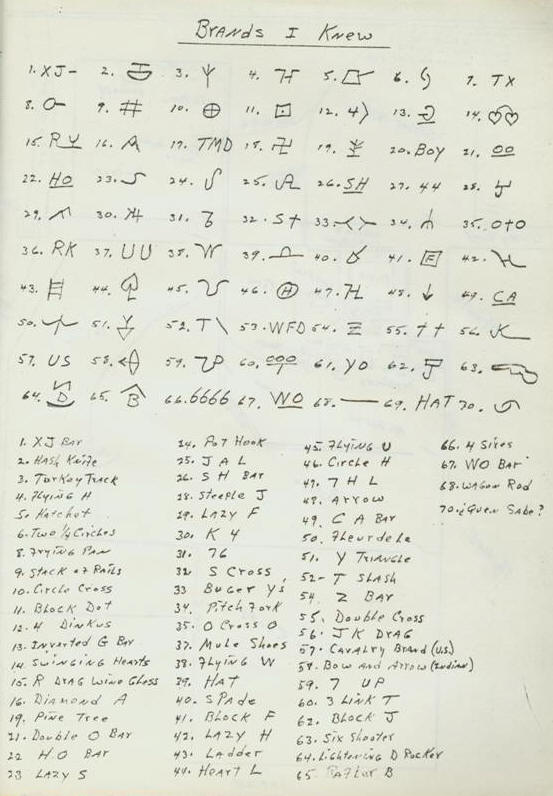 Brands I Knew
1. XJ- 2. 3. 4. 5. 6. 7. TX
8. 9. # 10. 11. 12. 13. 14.
15. R 16. 17. TMD 18. 19. 20. BOY 21. OO
22. HO 23. 24. 25. 26. SH 27. 44 28.
29. 30. 31. 32. S+ 33. 34. 35. O+O
36. RK 37. UU 38. W 39. 40. 41. F 42.
43. 44. 45. 46. H 47. 48. ↓ 49. CA
50. 51. 52. T\ 53. WFD 54. 55. ++ 56.
57. US 58. 59. 60. 61. YO 62. 63.
64. D 65. B 66. 6666 67. WO 68. — 69. HAT 70.
1. XJ Bar
2. Hash Knife
3. Turkey Track
4. Flying H
5. Hatchet
6. Two ¼ Circles
8. Frying Pan
9. Stack of Rails
10. Circle Cross
11. Block Dot
12. 4 Dinkus
13. Inverted G Bar
14. Swinging Hearts
15. R Drag Wine Glass
16. Diamond A
19. Pine Tree
21. Double O Bar
22 H O Bar
23 Lazy S
24. Pot Hook
25. J A L
26. S H Bar
28. Steeple J
29. Lazy F
30. K 4
31. 76
32 S Cross
33 Buger Ys
34. Pitch Fork
35. O Cross O
37. Mule Shoes
38. Flying W
39. Hat
40. Spade
41. Block F
42. Lazy H
43. Ladder
44. Heart L
45. Flying U
46. Circle H
47. 7 H L
48. Arrow
49. C A Bar
50. Fleurdele
51. Y Triangle
52- T Slash
54. Z Bar
55. Double Cross
56. J K Drag
57. Cavalry Brand (U.S.)
58. Bow and Arrow (Indian)
59. 7 UP
60. 3 Link T
62. Block J
63. Six Shooter
64. Lightening D Rocker
65 Rafter B
66. 4 Sixes
67. WO Bar
68. Wagon Rod
70. ¿Quen Sabe?